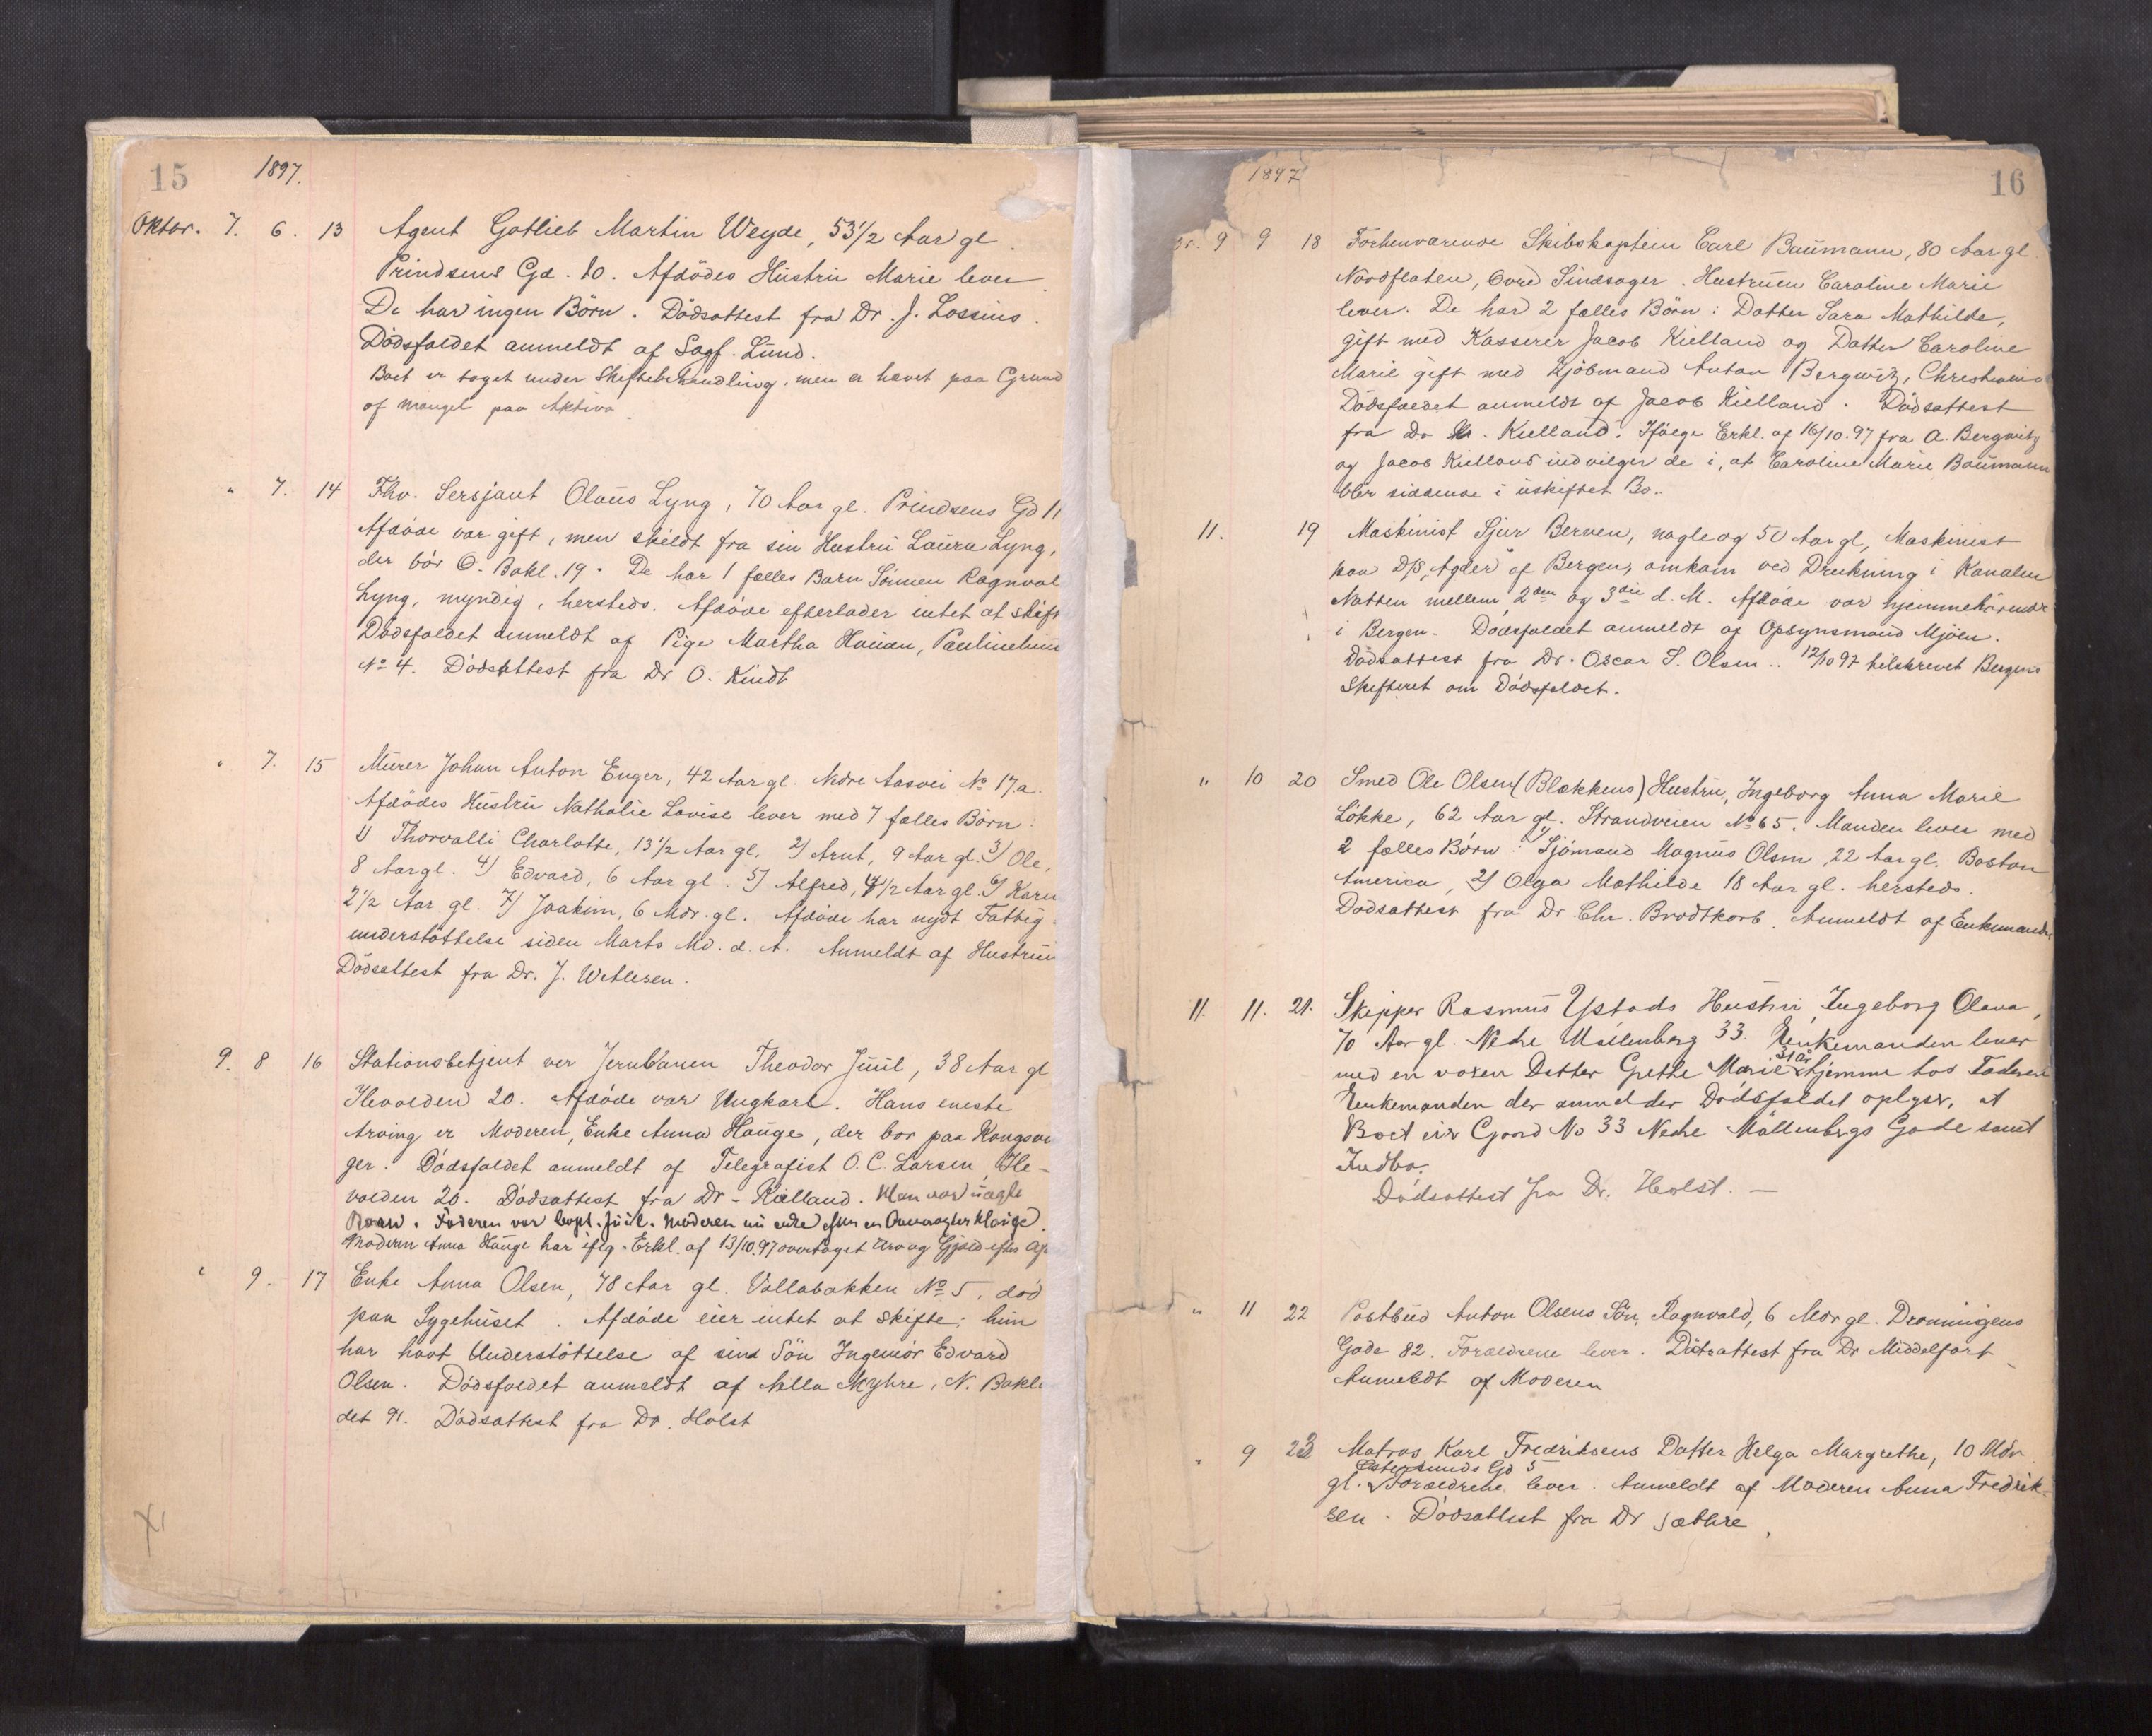 15
1897.
Oktbr. 7. 6. 13 Agent Gotlieb Martin Weyde, 53 1/2 Aar gl.
Prindsens Gd. 10. Afdödes Hustru Marie lever.
De har ingen Börn. Dödsattest fra Dr. J. Lossius.
Dödsfaldet anmeldt af Sagf. Lund.
Boet er taget under Skiftebehandling, men er hævet paa Grund
af Mangel paa Aktiva.
" 7. 14 Fhv. Sersjant Olaus Lyng, 70 Aar gl. Prindsens Gd 11
Afdöde var gift, men skildt fra sin Hustru Laura Lyng,
der bor Ö. Bakl. 19. De har 1 fælles Barn Sönnen Ragnval
Lyng, myndig, hersteds. Afdöde efterlader intet at skift
Dödsfaldet anmeldt af Pige Martha Hauan, Paulinelund
No 4. Dödsattest fra Dr O. Kindt
" 7. 15 Murer Johan Anton Enger, 42 Aar gl. Nedre Aasvei No 17.a.
Afdödes Hustru Nathalie Lovise lever med 7 fælles Börn:
1/ Thorvalli Charlotte, 13 1/2 Aar gl. 2/ Arnt, 9 Aar gl. 3/ Ole,
8 Aar gl. 4/ Edvard, 6 Aar gl. 5/ Alfred, 4 1/2 Aar gl. 6/ Karn
2 1/2 Aar gl. 7/ Joakim, 6 Mdr. gl. Afdöde har nydt Fattig-
understöttelse siden Marts Md. d. A. Anmeldt af Hustrun
Dödsattest fra Dr. J. Wetlesen.
9. 8 16 Stationsbetjent ver Jernbanen Theodor Juul, 38 Aar gl
Ilevolden 20. Afdöde var Ungkarl. Hans eneste
Arving er Moderen, Enke Anna Hauge, der bor paa Kongsvi
ger. Dödsfaldet anmeldt af Telegrafist O. C. Larsen, Ile-
volden 20. Dödsattest fra Dr - Kielland. Han var uægte
Barn. Faderen var Juul. Moderen nu enke efter en Hauge.
Moderen Anna Hauge har iflg. Erkl. af 13/10.97 overtaget Arv og Gjæld efter Af
" 9. 17 Enke Anna Olsen, 78 Aar gl. Vollabakken No 5, död
paa Sygehuset. Afdöde eier intet at skifte; hun
har havt Understöttelse af sin Sön Ingeniör Edvard
Olsen. Dödsfaldet anmeldt af Nella Myhre, N. Bakl
det 91. Dödsattest fra Dr. Holst
16
1897
9 9 18 Forhenværende Skibskaptein Carl Baumann, 80 Aar gl.
Nordflaten, Övre Sindsager. Hustruen Caroline Marie
lever. De har 2 fælles Börn: Datter Sara Mathilde,
gift med Kasserer Jacob Kielland og Datter Caroline
Marie gift med Kjöbmand Anton Bergwitz, Christiania
Dödsfaldet anmeldt af Jacob Kielland. Dödsattest
fra Dr Kr. Kielland. Ifölge Erkl. af 16/10.97 fra A. Bergwitz
og Jacob Kielland indvilger de i, at Caroline Marie Baumann
blir siddende i uskiftet Bo.
11. 19 Maskinist Sjur Berven, nogle og 50 Aar gl, Maskinist
paa D/S "Agder" af Bergen, omkom ved Drukning i Kanalen
Natten mellem 2den og 3die d. M. Afdöde var hjemmehörende
i Bergen. Dödsfaldet anmeldt af Opsynsmand Mjöen.
Dödsattest fra Dr. Oscar S. Olsen. 12/10 97 tilskrevet Bergens
Skifteret om Dödsfaldet.
" 10 20 Smed Ole Olsen (Blekkens) Hustru, Ingeborg Anna Marie
Lökke, 62 Aar gl. Strandveien No 65. Manden lever med
2 fælles Börn: 1/ Sjömand Magnus Olsen 22 Aar gl. Boston
America, 2/ Olga Mathilde 18 Aar gl. hersteds.
Dödsattest fra Dr. Chr. Brodtkorb. Anmeldt af Enkemanden
11. 11. 21. Skipper Rasmus Ystads Hustru, Ingeborg Olava,
70 Aar gl. Nedre Möllenberg 33. Enkemanden lever
med en voxen Datter Grethe Marie 31 Aar hjemme hos Faderen
Enkemanden der anmelder Dödsfaldet oplyser, at
Boet eier Gaard No 33 Nedre Möllenbergs Gade samt
Indbo.
Dödsattest fra Dr. Holst. —
" 11 22 Postbud Anton Olsens Sön, Ragnvald, 6 Mdr gl. Dronningens
Gade 82. Foræeldrene lever. Dödsattest fra Dr Middelfart
Anmeldt af Moderen
" 9 23 Matros Karl Fredriksens Datter Helga Margrethe, 10 Mdr.
Östersunds Gd 5
gl. Forældrene lever. Anmeldt af Moderen Anna Fredrik-
sen. Dödsattest fra Dr Sæthre.